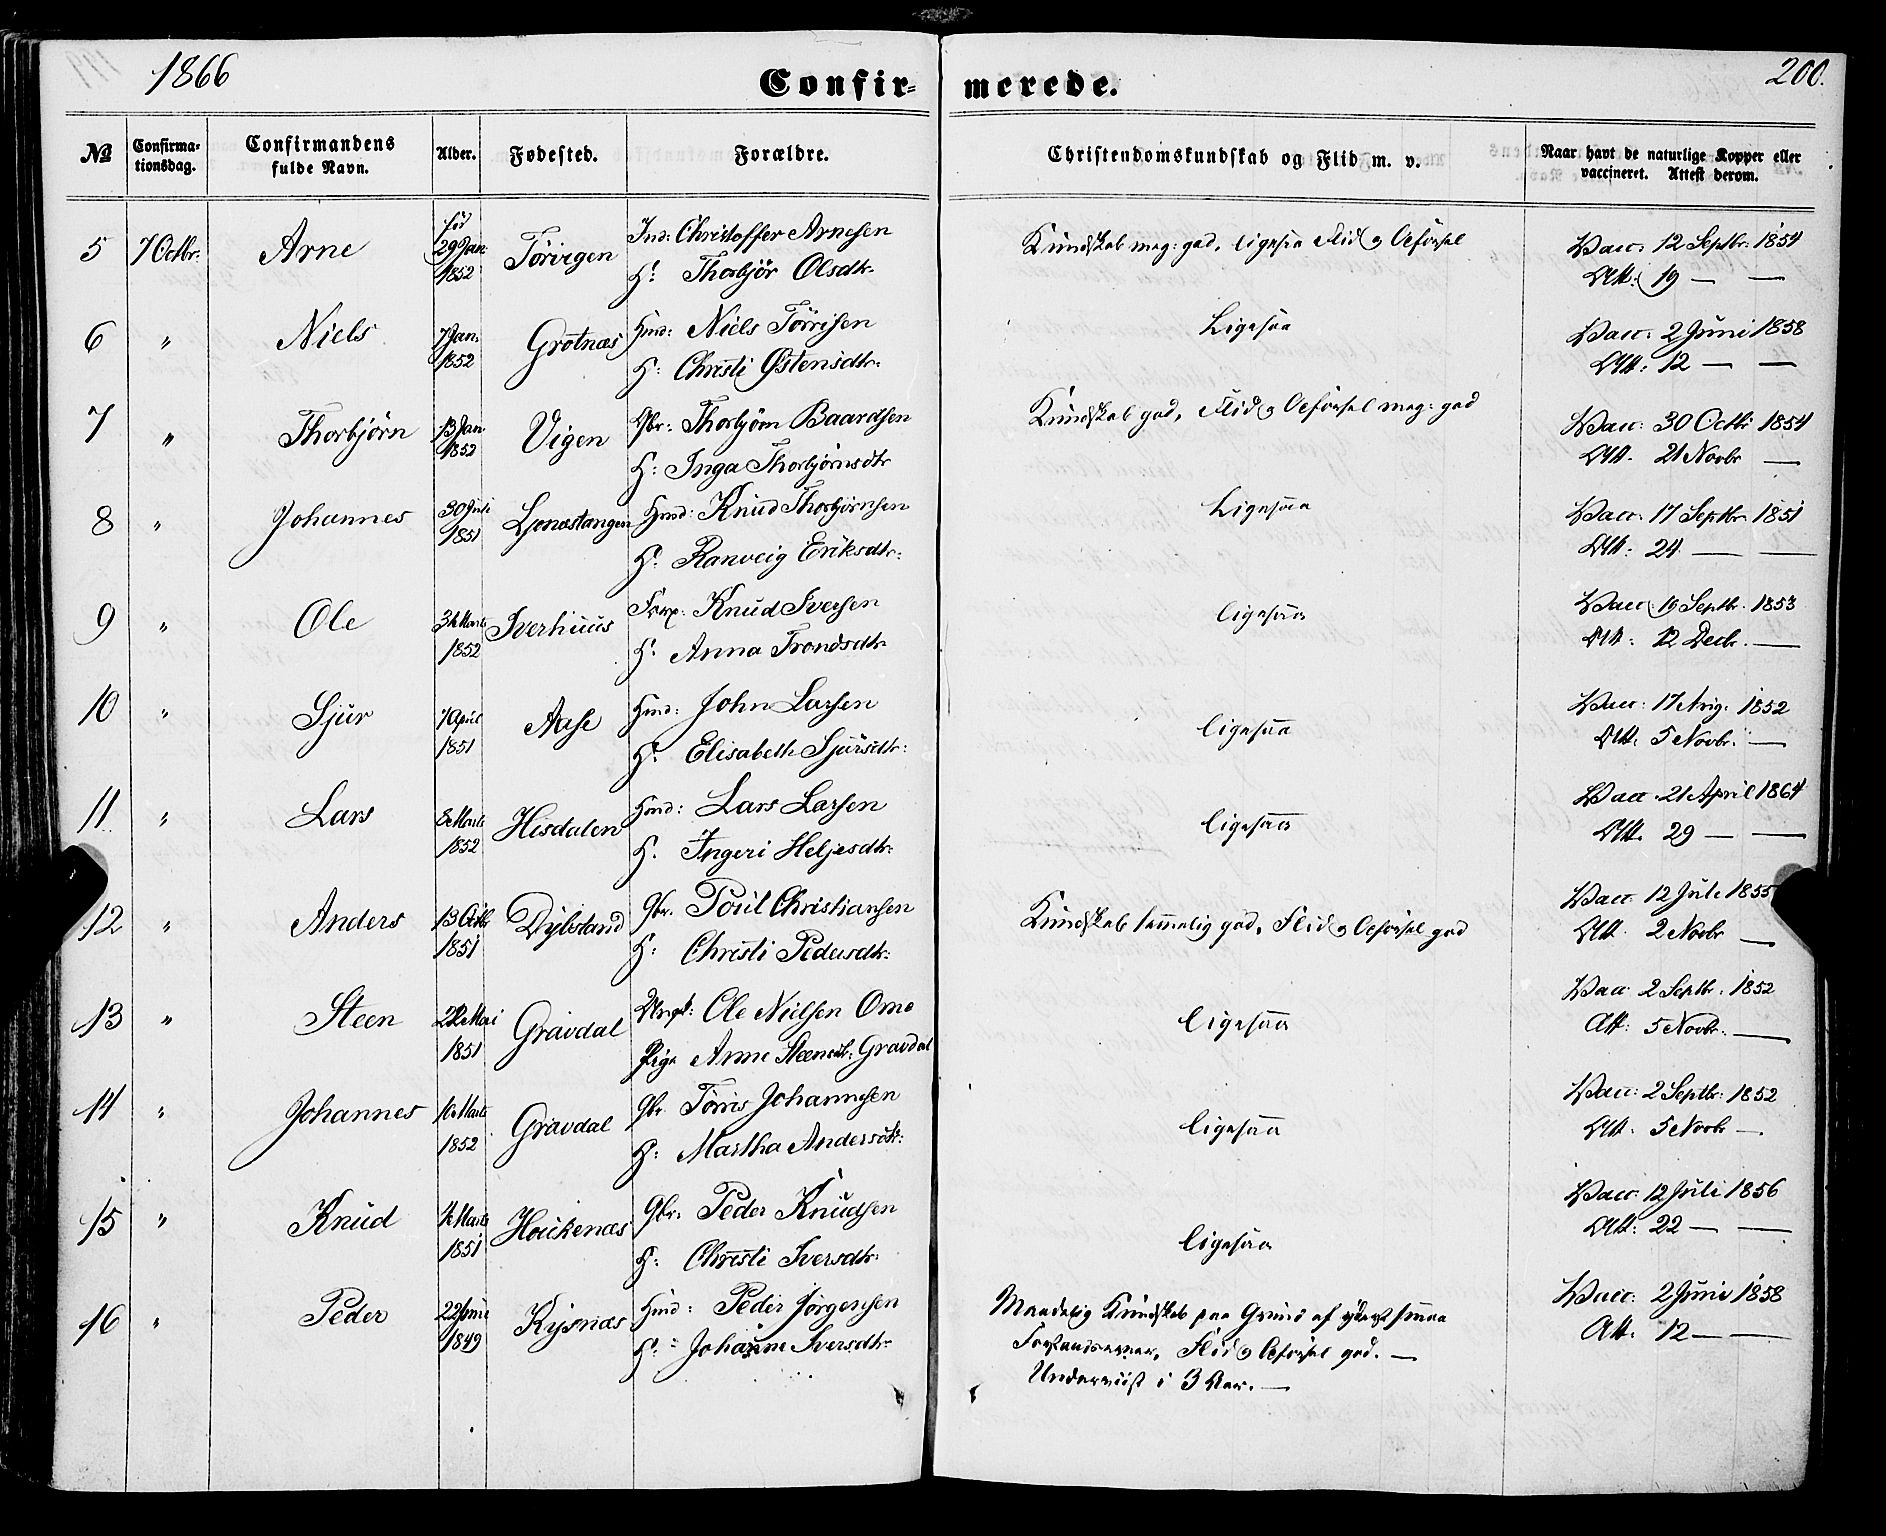 1866
Confir-
merede.
200.
№
Confirma-
tionsdag.
Confirmandens
fulde Navn.
Alder.
Fødested.
Forældre.
Christendomskundskab og Flid m. v.
Naar havt de naturlige Kopper eller
vaccineret. Attest derom.
5 7 Octbr: Arne
29 Jan:
1852
Tørvigen
Ind: Christoffer Arnesen
H: Thorbjør Olsdtr.
Kundskab meg: god, ligesaa Flid og Opførsel
Vacc: 12 Septbr: 1854
Att: 19 — —
6 " Niels
7 Jan:
1852
Grotnæs
Hmd: Niels Tørrisen
H: Christi Østensdtr:
Ligesaa
Vacc: 2 Juni 1858
Att: 12 — —
7 " Thorbjørn
13 Jan
1852
Vigen
Gbr: Thorbjørn Baardsen
H: Inga Thorbjørnsdtr
Kundskab god, Flid og Opførsel meg: god
Vacc: 30 Octb: 1854
Att. 21 Novbr —
8 " Johannes
30 Juli
1851
Ljonæstangen
Hmd: Knud Thorbjørnsen
H: Ranveig Eriksdtr:
Ligesaa
Vacc: 17 Septbr 1851
Att: 24 — —
9 " Ole
Marts
1852
Iverhuus
Knud Iversen
H: Anna Trondsdtr
ligesaa
Vacc: 19 Septbr. 1853
Att: 12 Decbr. —
10 " Sjur
7 April
1851
Aase
Hmd: John Larsen
H: Elisabeth Sjursdtr:
ligesaa
Vacc: 17 Aug: 1852
Att. 5 Novbr. —
11 " Lars
8 Marts
1852
Hisdalen
Hmd: Lars Larsen
H. Ingeri Heljesdtr:
ligesaa
Vacc. 21 April 1864
Att. 29 — —
12 " Anders
13 Octbr
1851
Dybsland
Gbr. Poul Christiansen
H: Christi Pedersdtr:
Kundskab temmelig god, Flid og Opførsel god
Vacc 12 Juli 1855
Att. 2 Novbr —
13 " Steen
22 Mai
1851
Gravdal
Ungk: Ole Nielsen Omo
Pige Anne Steensdtr: Gravdal
Ligesaa
Vacc: 2 Septbr: 1852
Att: 5 Novbr: —
14 " Johannes
Marts
1852
Gravdal
Gbr. Tørris Johannesen
H: Martha Andersdtr:
ligesaa
Vacc: 2 Septbr: 1852
Att. 5 Novbr —
15 " Knud
Marts
1851
Houkenæs
Gbr: Peder Knudsen
H: Christi Iversdtr:
ligesaa
Vacc: 12 Juli 1856
Att: 22 — —
16 " Peder
22 Juni
1849
Kysnæs
Hmd: Peder Jørgensen
H: Johanne Iversdtr:
Maadelig Kundskab paa Grund af yderst smaa
Forstandsevner, Flid og Opførsel god. —
Underviist i 3 Aar. —
Vacc: 2 Juni 1858
Att. 12 — —